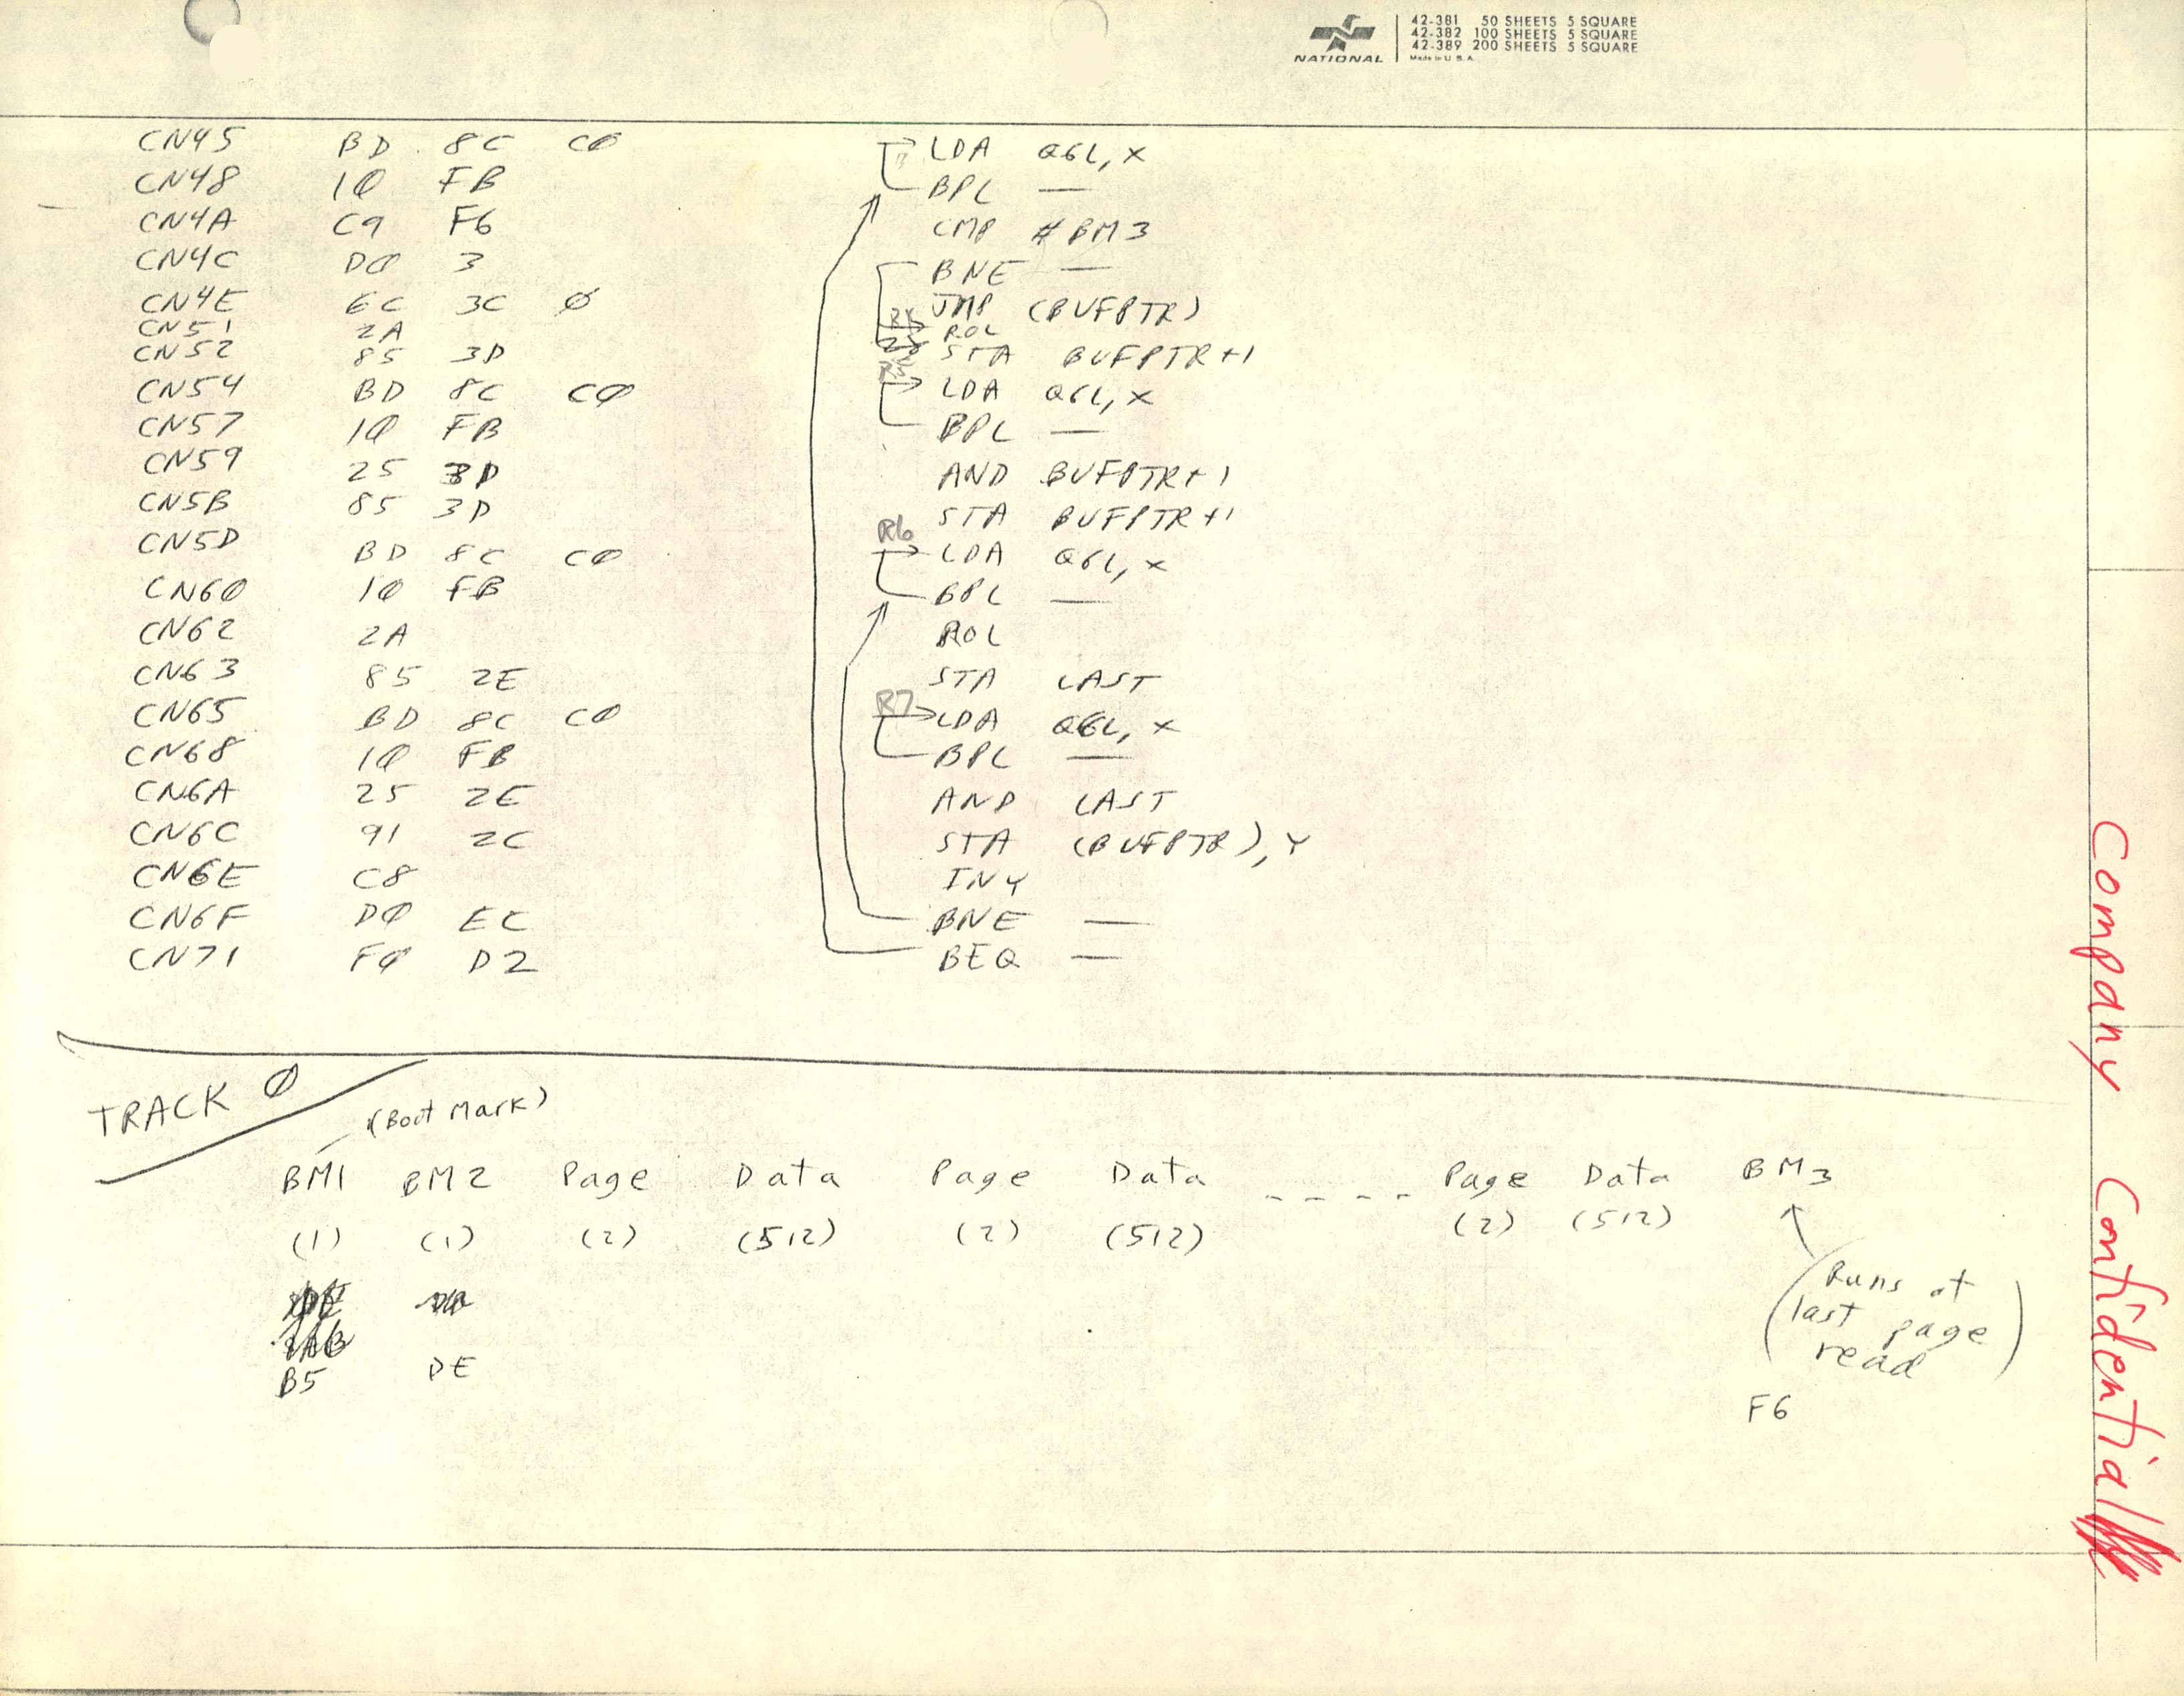 NATIONAL
42-381 50 SHEETS 5 SQUARE
42-382 100 SHEETS 5 SQUARE
42-389 200 SHEETS 5 SQUARE
Made in U. S. A.
CN45 BD 8C CØ LDA Q6L, X
CN48 1Ø FB BPL —
CN4A C9 F6 CMP # BM3
CN4C DØ 3 BNE —
CN4E 6C 3C Ø JMP (BUFPTR)
CN51 2A ROL
CN52 85 3D STA BUFPTR+1
CN54 BD 8C CØ LDA Q6L, X
CN57 1Ø FB BPL —
CN59 25 3D AND BUFPTR+1
CN5B 85 3D STA BUFPTR+1
CN5D BD 8C CØ R6 LDA Q6L, X
CN6Ø 1Ø FB BPL —
CN62 2A ROL
CN63 85 2E STA LAST
CN65 BD 8C CØ R7 LDA Q6L, X
CN68 1Ø FB BPL —
CN6A 25 2E AND LAST
CN6C 91 2C STA (BUFPTR), Y
CN6E C8 INY
CN6F DØ EC BNE —
CN71 FØ D2 BEQ —
TRACK Ø
(Boot Mark)
BM1 BM2 Page Data Page Data - - - - Page Data BM3
(1) (1) (2) (512) (2) (512) (2) (512)
(Runs at
last page
read)
B5 DE
F6
Company Confidential